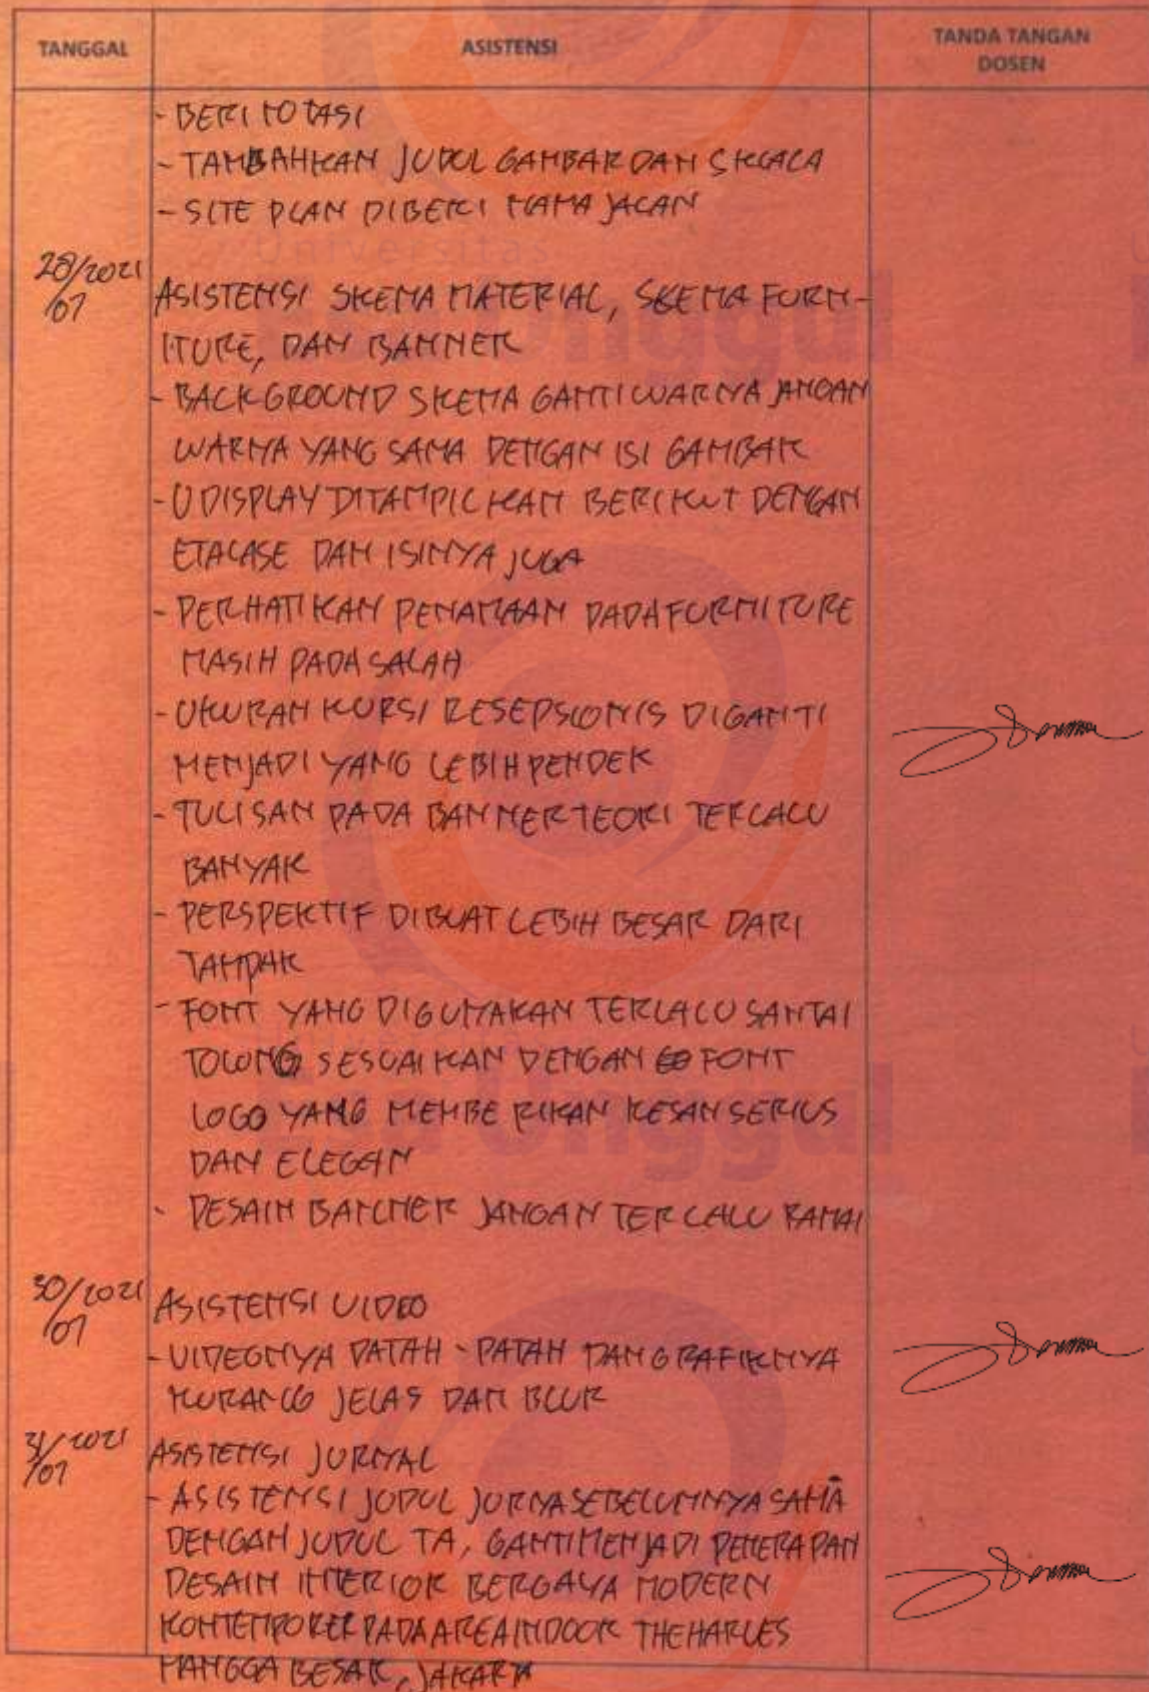 TANGGAL ASISTENSI TANDA TANGAN
DOSEN
- BERI NOTASI
- TAMBAHKAN JUDUL GAMBAR DAN SKALA
- SITE PLAN DIBERI NAMA JALAN
Universitas
28/07/2021
ASISTENSI SKEMA MATERIAL, SKEMA FURN-
ITURE, DAN BANNER
Esa Unggul
- BACKGROUND SKEMA GANTI WARNA JANGAN
WARNA YANG SAMA DENGAN ISI GAMBAR
- U DISPLAY DITAMPILKAN BERIKUT DENGAN
ETALASE DAN ISINYA JUGA
- PERHATIKAN PENAMAAN PADA FURNITURE
MASIH PADA SALAH
- UKURAN KURSI RESEPSIONIS DIGANTI
MENJADI YANG LEBIH PENDEK
- TULISAN PADA BANNER TEORI TERLALU
BANYAK
- PERSPEKTIF DIBUAT LEBIH BESAR DARI
TAMPAK
- FONT YANG DIGUNAKAN TERLALU SANTAI
TOLONG SESUAIKAN DENGAN FONT
LOGO YANG MEMBERIKAN KESAN SERIUS
DAN ELEGAN
Esa Unggul
- DESAIN BANNER JANGAN TERLALU RAMAI
30/07/2021
ASISTENSI VIDEO
- VIDEONYA PATAH - PATAH DAN GRAFIKNYA
KURANG JELAS DAN BLUR
31/07/2021
ASISTENSI JURNAL
- ASISTENSI JUDUL JURNA SEBELUMNYA SAMA
DENGAN JUDUL TA, GANTI MENJADI PENERAPAN
DESAIN INTERIOR BERGAYA MODERN
KONTEMPORER PADA AREA INDOOR THE HARLES
MANGGA BESAR, JAKARTA